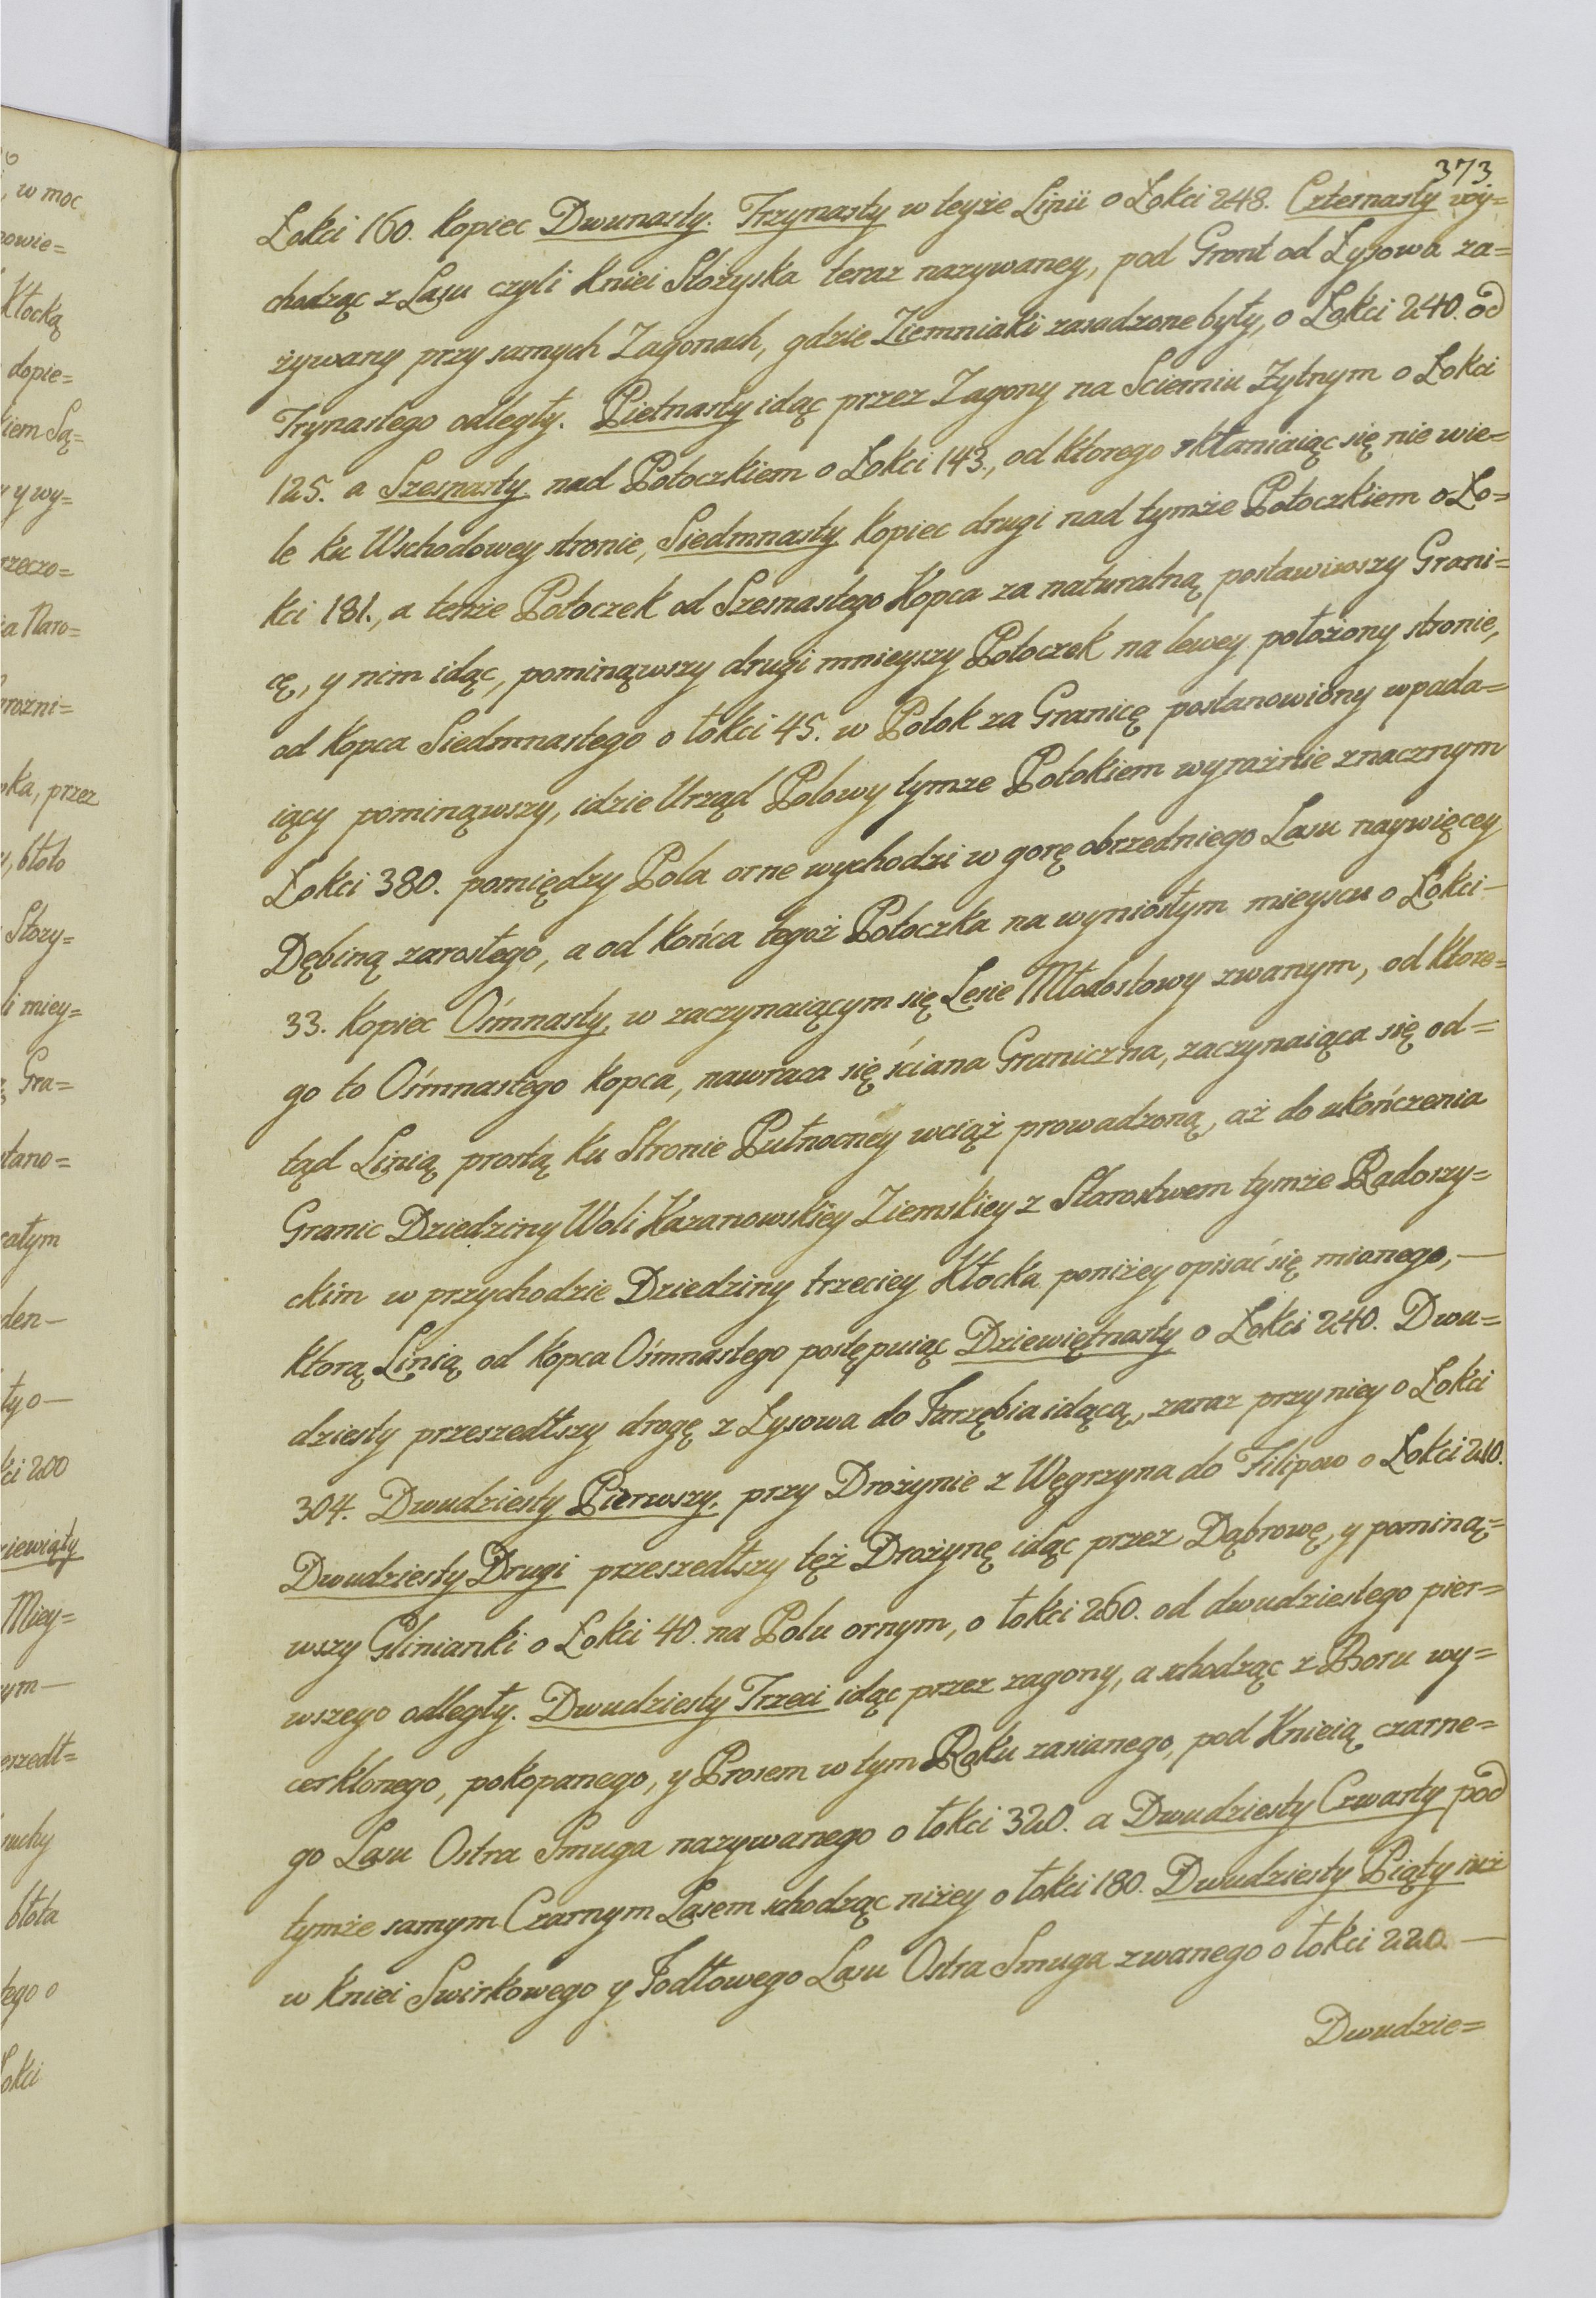 373
Łokci 160. kopiec Dwunasty. Trzynasty w teyże Linii o Łokci 248. Czternasty wy=
chodząc z Lasu czyli Kniei Stożyska teraz nazywaney, pod Gront od Łysowa za=
żywany przy samych Zagonach, gdzie Ziemniaki zasadzone były, o Łokci 240. od
Trynastego odległy. Pietnasty idąc przez Zagony na Scierniu Żytnym o Łokci
125. a Szesnasty nad Potoczkiem o Łokci 143., od ktorego skłaniaiąc się nie wie=
le ku Wschodowey stronie, Siedmnasty kopiec drugi nad tymże Potoczkiem o Ło=
kci 181., a tenże Potoczek od Szesnastego Kopca za naturalną postawiwszy Grani=
cę, y nim idąc, pominąwszy drugi mnieyszy Potoczek na lewey położony stronie,
od kopca Siedmnastego o łokci 45. w Potok za Granicę postanowiony wpada=
iący pominąwszy, idzie Urząd Polowy tymże Potokiem wyraźnie znacznym
Łokci 380. pomiędzy Pola orne wychodzi w gorę obrzedniego Lasu naywięcey
Dębiną zarosłego, a od końca tegoż Potoczka na wyniosłym mieyscu o Łokci –
33. kopiec Ośmnasty, w zaczynaiącym się Lesie Młodostowy zwanym, od ktore=
go to Ośmnastego kopca, nawraca się ściana Graniczna, zaczynaiąca się od=
tąd Linią prostą ku Stronie Pułnocney wciąż prowadzoną, aż do ukończenia
Granic Dziedziny Woli Kazanowskiey Ziemskiey z Starostwem tymże Radoszy=
ckim w przychodzie Dziedziny trzeciey Kłocka poniżey opisać się mianego, –
ktorą Linią od kopca Ośmnastego postępuiąc Dziewiętnasty o Łokci 240. Dwu=
dziesty przeszedłszy drogę z Łysowa do Jarzębia idącą, zaraz przy niey o Łokci
304. Dwudziesty Pierwszy, przy Drożynie z Węgrzyna do Filipow o Łokci 210.
Dwudziesty Drugi przeszedłszy tęż Drożynę idąc przez Dąbrowę, y pominą=
wszy Glinianki o Łokci 40. na Polu ornym, o łokci 260. od dwudziestego pier=
wszego odległy. Dwudziesty Trzeci idąc przez zagony, a schodząc z Boru wy=
cerklonego, pokopanego, y Prosem w tym Roku zasianego, pod Knieią czarne=
go Lasu Ostra Smuga nazywanego o łokci 320. a Dwudziesty Czwarty pod
tymże samym Czarnym Lasem schodząc niżey o łokci 180. Dwudziesty Piąty iuż
w kniei Swirkowego y Jodłowego Lasu Ostra Smuga zwanego o łokci 220. –
Dwudzie=